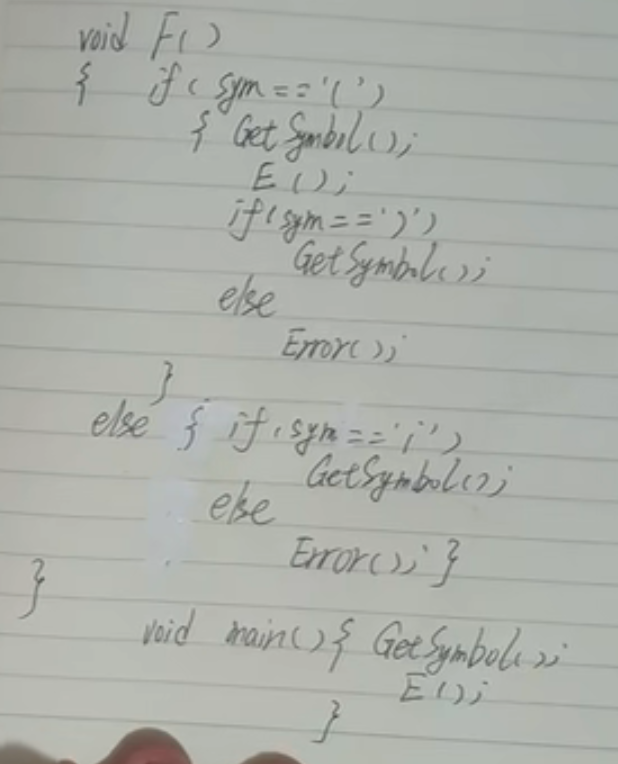 void F()
{ if( sym=='(')
{ GetSymbol();
E();
if(sym==')')
GetSymbol();
else
Error();
}
else { if(sym=='i')
GetSymbol();
else
Error();}
}
void main(){ GetSymbol();
E();
}